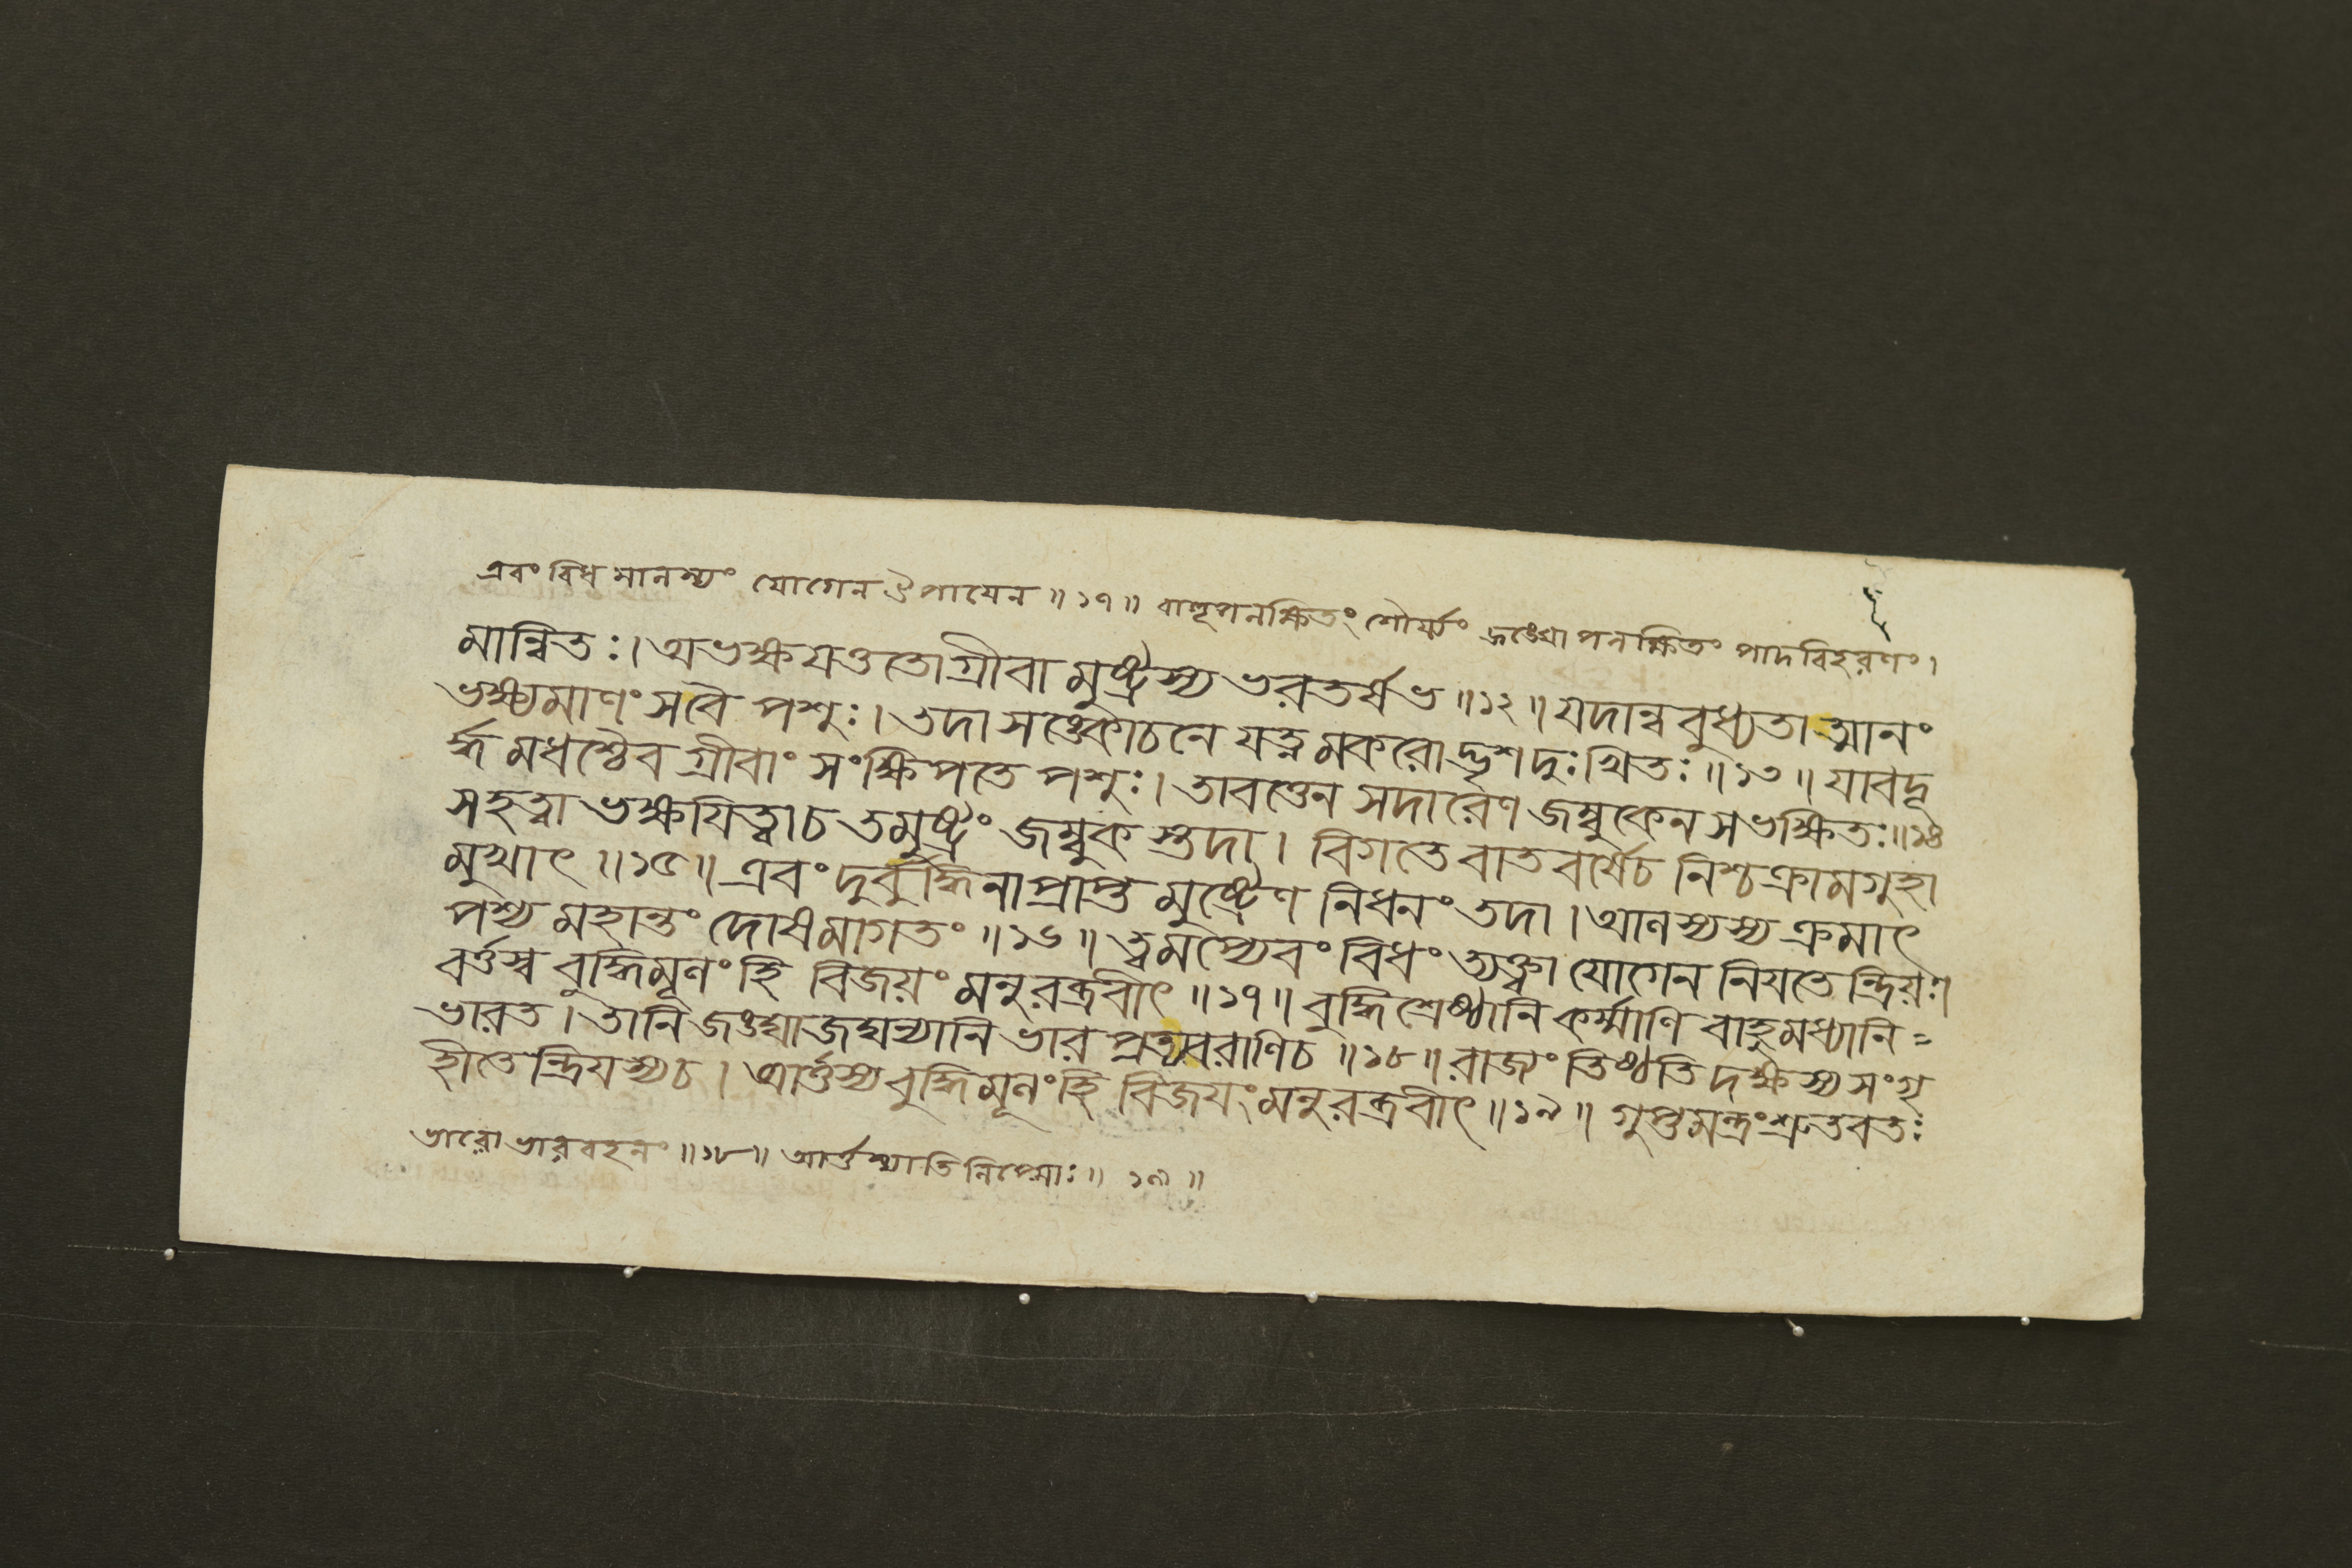 এবং বিধ মানস্যং যোগেন উপায়েন ॥ ১৭ ॥ বাহূপলক্ষিতং শৌর্য্যং জঙ্ঘোপলক্ষিতং পাদবিহরণং।
মান্বিতঃ। অভক্ষযত্ততো গ্রীবা মুষ্ট্রস্য ভরতর্ষভ ॥ ১২ ॥ যদান্ববুধ্যতাত্মানং
ভক্ষ্যমাণং সবৈ পশুঃ। তদা সঙ্কোচনে যত্নমকরোদ্ভৃশদুঃখিতঃ ॥ ১৩ ॥ যাবদূ
র্দ্ধ মধশ্চৈব গ্রীবাং সংক্ষিপতে পশুঃ। তাবত্তেন সদারেণ জম্বুকেন সভক্ষিতঃ ॥ ১৪
সহত্বা ভক্ষযিত্বাচ তমুষ্ট্রং জম্বুক স্তদা। বিগতে বাতবর্ষেচ নিশ্চক্রাম গুহা
মুখাৎ ॥ ১৫ ॥ এবং দুর্বুদ্ধিনাপ্রাপ্ত মুষ্ট্রেণ নিধনং তদা। আলস্যস্য ক্রমাৎ
পশ্য মহান্তং দোষমাগতং ॥ ১৬ ॥ ত্বমপ্যেবং বিধং ত্যক্ত্বা যোগেন নিযতেন্দ্রিয়ঃ।
বর্ত্তস্ব বুদ্ধিমূলং হি বিজয়ং মনুরব্রবীৎ ॥ ১৭ ॥ বুদ্ধিশ্রেষ্ঠানি কর্ম্মাণি বাহুমধ্যানি=
ভারত। তানি জঙ্ঘাজঘন্যানি ভার প্রত্যবরাণিচ ॥ ১৮ ॥ রাজ্যং তিষ্ঠতি দক্ষস্য সংগৃ
হীতেন্দ্রিযস্যচ। আর্ত্তস্য বুদ্ধিমূলং হি বিজয়ং মনুরব্রবীৎ ॥ ১৯ ॥ গুপ্তমন্ত্রংশ্রুতবতঃ
ভারো ভারবহনং ॥ ১৮ ॥ আর্ত্তস্যাতিলিপ্সোঃ ॥ ১৯ ॥